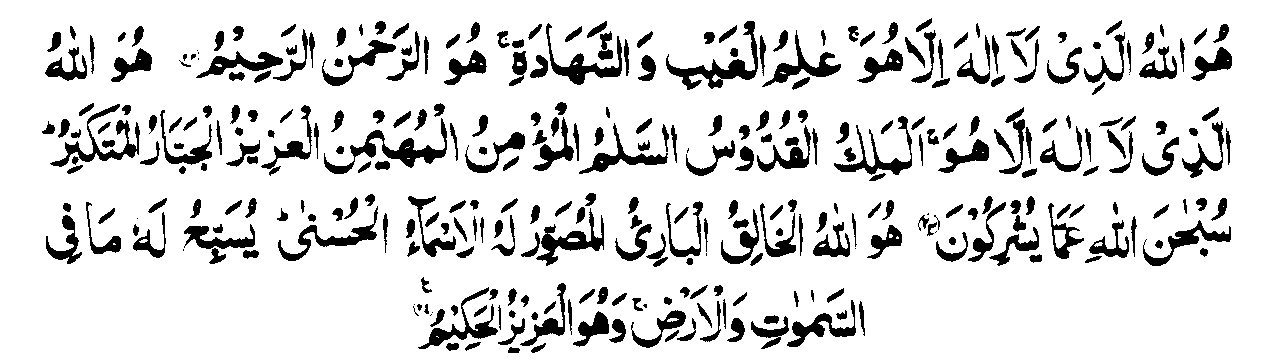 هُوَ اللهُ الَّذِیْ لَاۤ اِلٰهَ اِلَّا هُوَ ۚ عٰلِمُ الْغَیْبِ وَ الشَّهَادَةِ ۚ هُوَ الرَّحْمٰنُ الرَّحِیْمُ ۝ هُوَ اللهُ
الَّذِیْ لَاۤ اِلٰهَ اِلَّا هُوَ ۚ اَلْمَلِكُ الْقُدُّوْسُ السَّلٰمُ الْمُؤْمِنُ الْمُهَیْمِنُ الْعَزِیْزُ الْجَبَّارُ الْمُتَكَبِّرُ ؕ
سُبْحٰنَ اللهِ عَمَّا یُشْرِكُوْنَ ۝ هُوَ اللهُ الْخَالِقُ الْبَارِئُ الْمُصَوِّرُ لَهُ الْاَسْمَآءُ الْحُسْنٰی ؕ یُسَبِّحُ لَهٗ مَا فِی
السَّمٰوٰتِ وَ الْاَرْضِ ۚ وَ هُوَ الْعَزِیْزُ الْحَكِیْمُ ۝